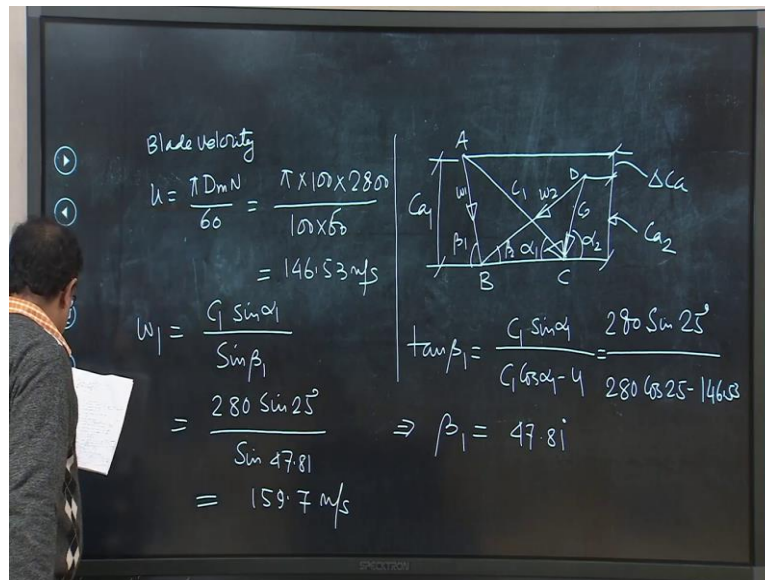 Blade velocity
u = πDmN/60 = π×100×2800/100×60
= 146.53 m/s
w1 = C1 sinα1/Sinβ1
= 280 Sin 25°/Sin 47.81
= 159.7 m/s
A
D
ΔCa
Ca1
w1
C1
w2
C2
Ca2
β1
β2
α1
α2
B
C
tanβ1 = C1 sinα1/C1 cosα1 - u = 280 Sin 25°/280 Cos 25 - 146.53
⇒ β1 = 47.81
SPECKTRON